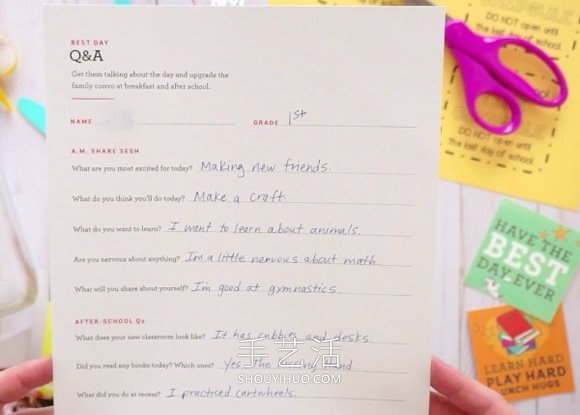 BEST DAY
Q&A
Get them talking about the day and upgrade the
family convo at breakfast and after school.
NAME
GRADE 1st
A.M. SHARE SESH
What are you most excited for today? Making new friends.
What do you think you'll do today? Make a craft.
What do you want to learn? I want to learn about animals.
Are you nervous about anything? I'm a little nervous about math.
What will you share about yourself? I'm good at gymnastics.
AFTER-SCHOOL Qs
What does your new classroom look like? It has cubbies and desks.
Did you read any books today? Which ones? Yes The Hand.
What did you do at recess? I practiced cartwheels.
手艺活
SHOUYIHUO.COM
CAPSULE
DO NOT open until
the last day of school.
DO NOT open until
the last day of school.
HAVE THE
BEST
DAY EVER
LEARN HARD
PLAY HARD
LUNCH HUGS